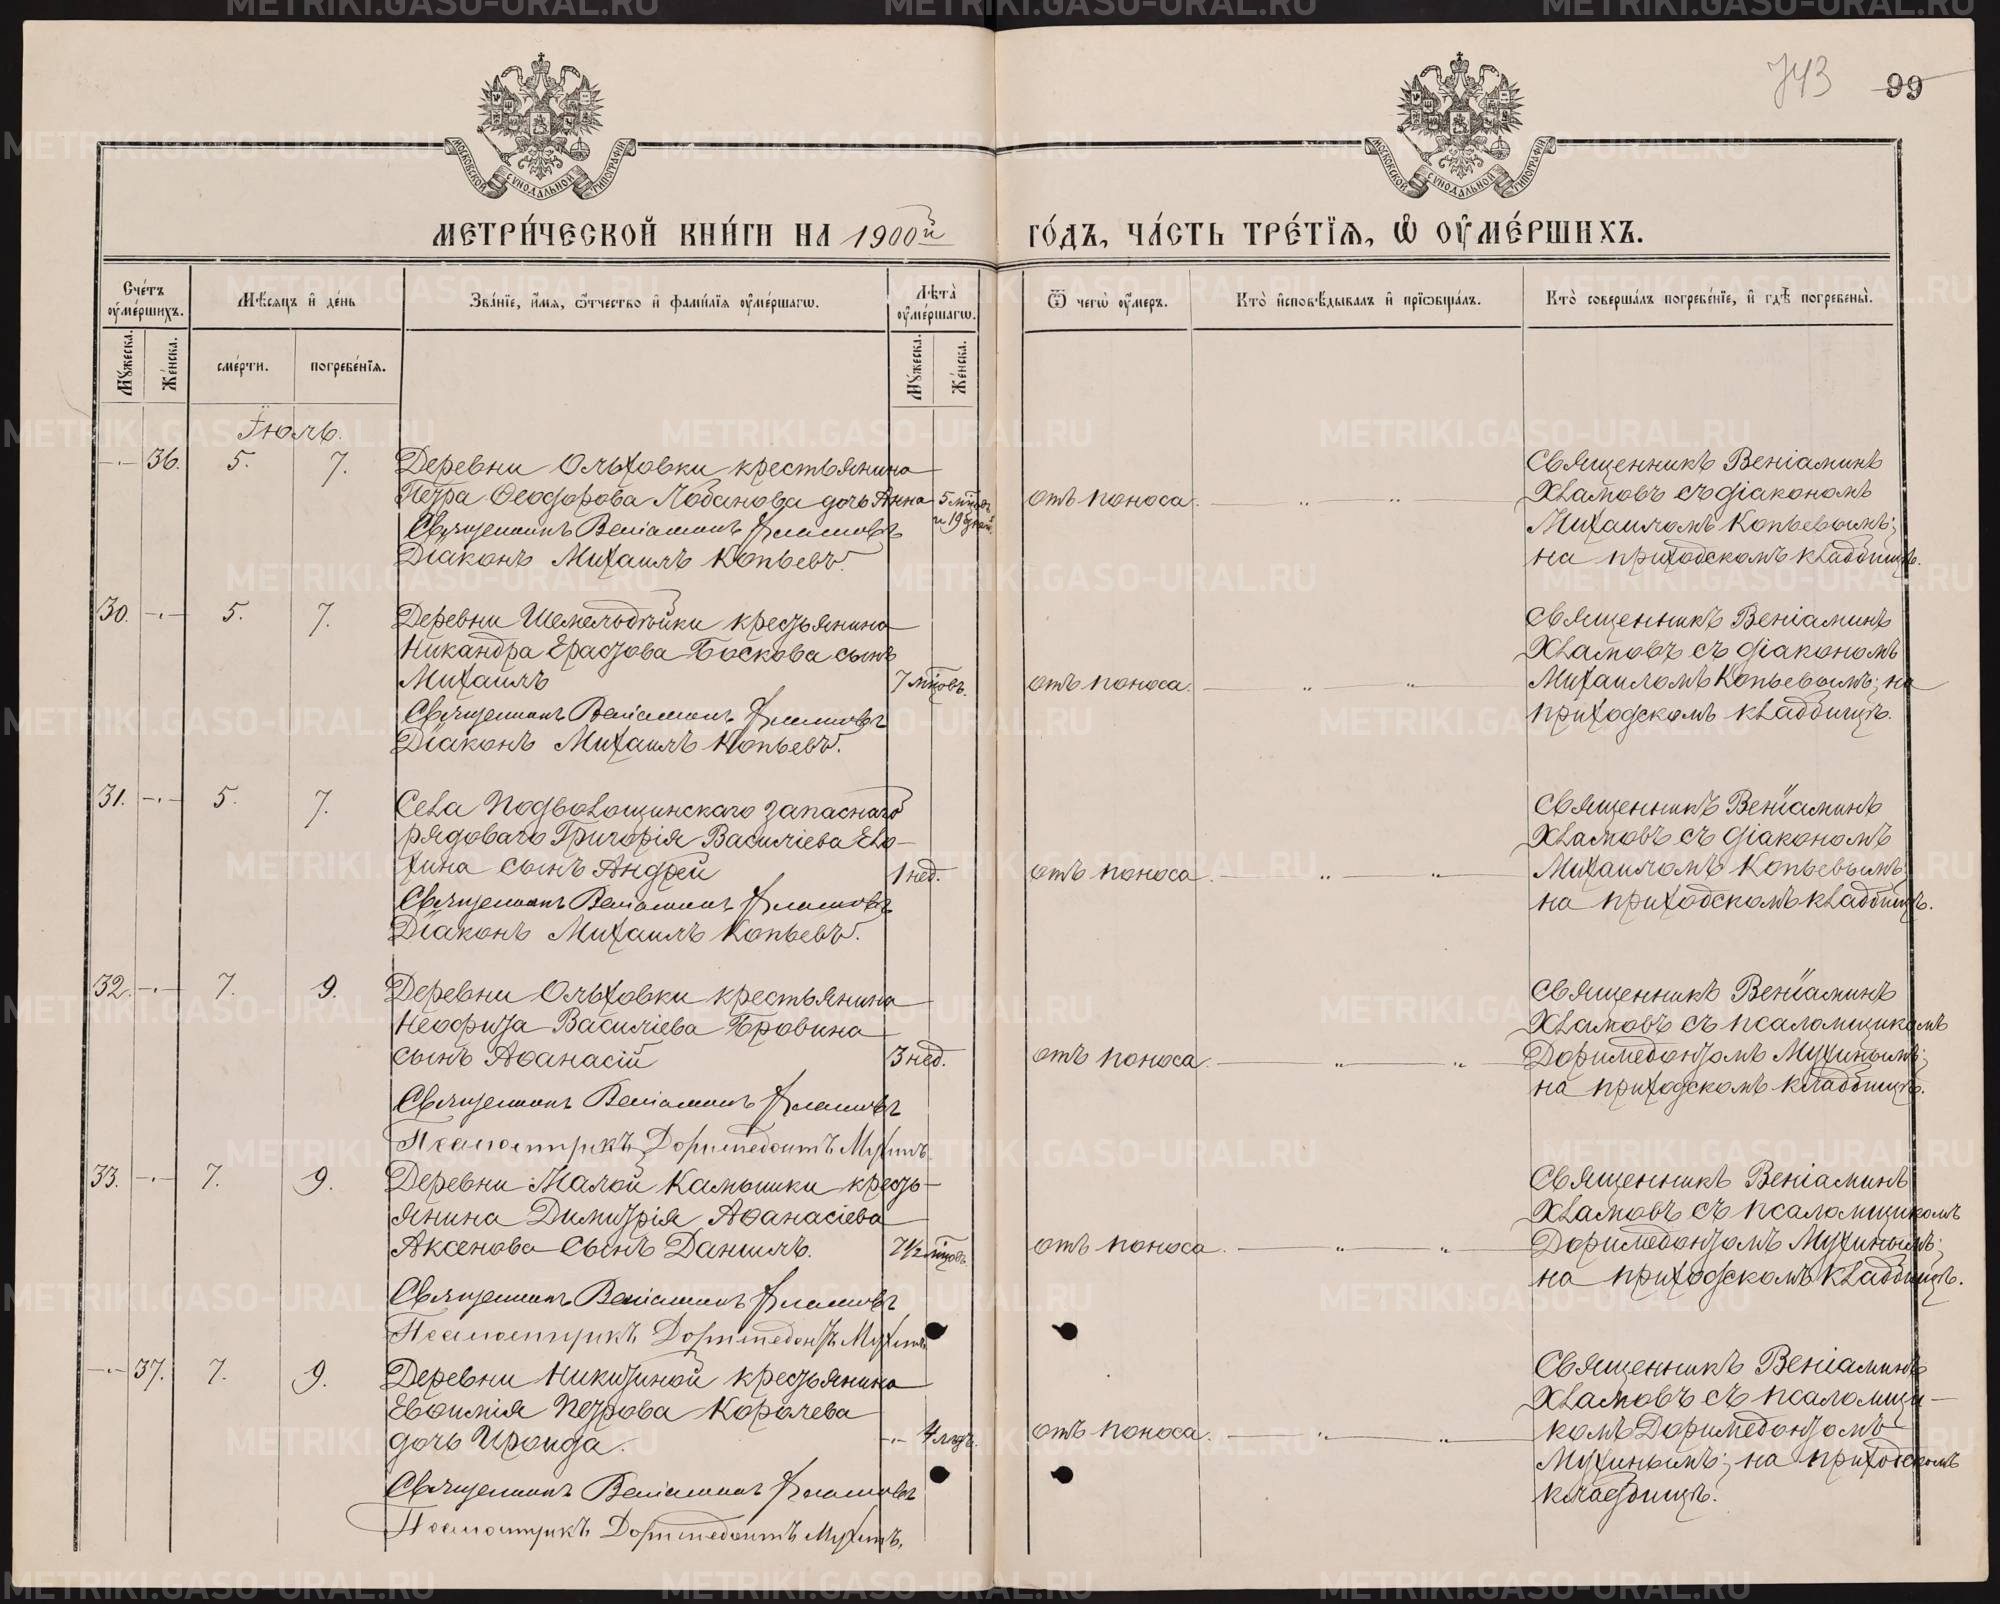 743 99
МОСКОВСКОЙ СУНОДАЛЬНОЙ ТИПОГРАФІИ
МОСКОВСКОЙ СУНОДАЛЬНОЙ ТИПОГРАФІИ
МЕТРИ́ЧЕСКОЙ КНИ́ГИ НА 1900й ГО́ДЪ, ЧА́СТЬ ТРЕ́ТЇѦ, Ѡ҆ ОУ҆МЕ́РШИХЪ.
Сче́тъ оу҆ме́ршихъ.
Мꙋжеска.
Же́нска.
Мѣ́сѧцъ и҆ де́нь
сме́рти.
погребе́нїѧ.
Зва́нїе, и҆́мѧ, ѻ҆́тчество и҆ фами́лїѧ оу҆ме́ршагѡ.
Лѣ́та оу҆ме́ршагѡ.
Мꙋжеска.
Же́нска.
Ѿ чегѡ̀ оу҆́меръ.
Кто̀ и҆сповѣ́дывалъ и҆ прїѡбща́лъ.
Кто̀ соверша́лъ погребе́нїе, и҆ гдѣ̀ погребены̀.
Іюль.
-"- 36. 5. 7. Деревни Ольховки крестьянина
Петра Ѳеодорова Лобанова дочь Анна 5 мѣсцовъ и 19 дней отъ поноса. " "
Священникъ Веніаминъ Хламовъ
Діаконъ Михаилъ Копьевъ.
Священникъ Веніаминъ
Хламовъ съ діакономъ
Михаиломъ Копьевымъ;
на приходскомъ кладбищѣ.
30. -"- 5. 7. Деревни крестьянина
Никандра Ерастова Боскова сынъ
Михаилъ 7 мѣсцовъ. отъ поноса. " "
Священникъ Веніаминъ Хламовъ
Діаконъ Михаилъ Копьевъ.
Священникъ Веніаминъ
Хламовъ съ діакономъ
Михаиломъ Копьевымъ; на
приходскомъ кладбищѣ.
31. -"- 5. 7. Села Подволошинскаго запаснаго
рядоваго Григорія Василіева Ело-
хина сынъ Андрей 1 нед. отъ поноса " "
Священникъ Веніаминъ Хламовъ
Діаконъ Михаилъ Копьевъ.
Священникъ Веніаминъ
Хламовъ съ діакономъ
Михаиломъ Копьевымъ;
на приходскомъ кладбищѣ.
32. -"- 7. 9. Деревни Ольховки крестьянина
Неофита Василіева Бровина
сынъ Аѳанасій 3 нед. отъ поноса. " "
Священникъ Веніаминъ Хламовъ
Псаломщикъ Доримедонтъ Мухинъ.
Священникъ Веніаминъ
Хламовъ съ псаломщикомъ
Доримедонтомъ Мухинымъ;
на приходскомъ кладбищѣ.
33. -"- 7. 9. Деревни Малой Камышки кресть-
янина Димитрія Аѳанасіева
Аксенова сынъ Даниилъ. 7½ мѣсцовъ. отъ поноса. " "
Священникъ Веніаминъ Хламовъ
Псаломщикъ Доримедонтъ Мухинъ
Священникъ Веніаминъ
Хламовъ съ псаломщикомъ
Доримедонтомъ Мухинымъ;
на приходскомъ кладбищѣ.
-"- 37. 7. 9. Деревни Никитиной крестьянина
Евѳимія Петрова Королева
дочь Ираида. -"- 4 отъ поноса. " "
Священникъ Веніаминъ Хламовъ
Псаломщикъ Доримедонтъ Мухинъ.
Священникъ Веніаминъ
Хламовъ съ псаломщи-
комъ Доримедонтомъ
Мухинымъ; на приходскомъ
кладбищѣ.
METRIKI.GASO-URAL.RU